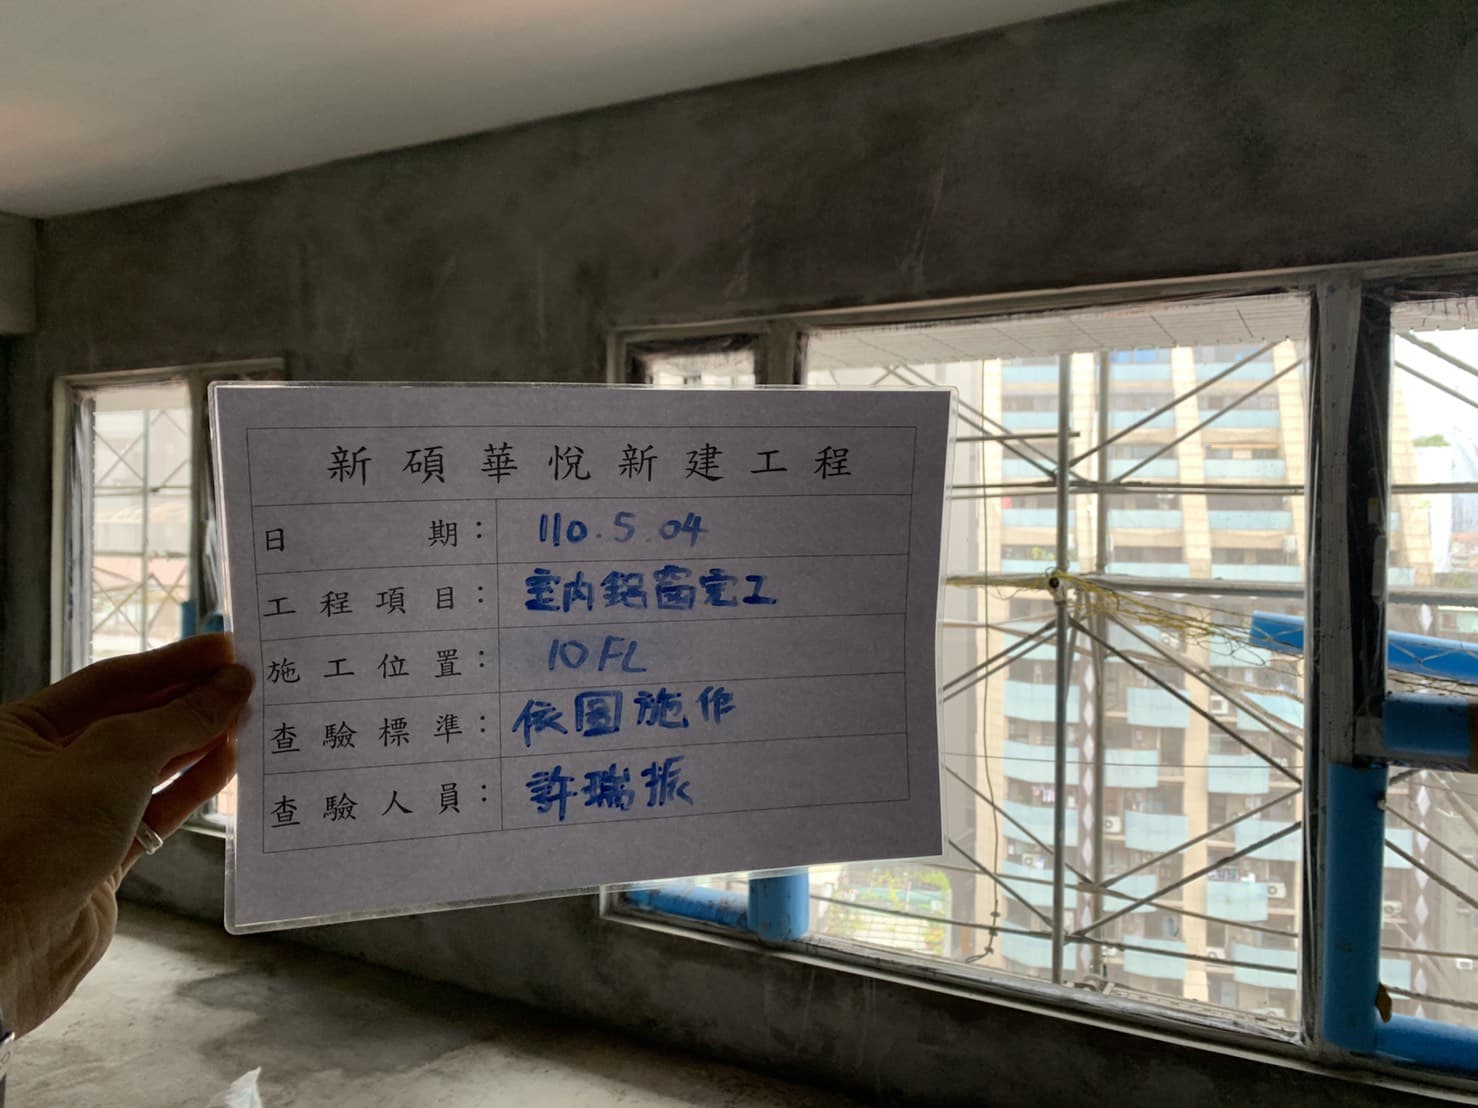 新碩華悅新建工程
日期：110.5.04
工程項目：室內鋁窗完工
施工位置：10FL
查驗標準：依圖施作
查驗人員：許瑞振